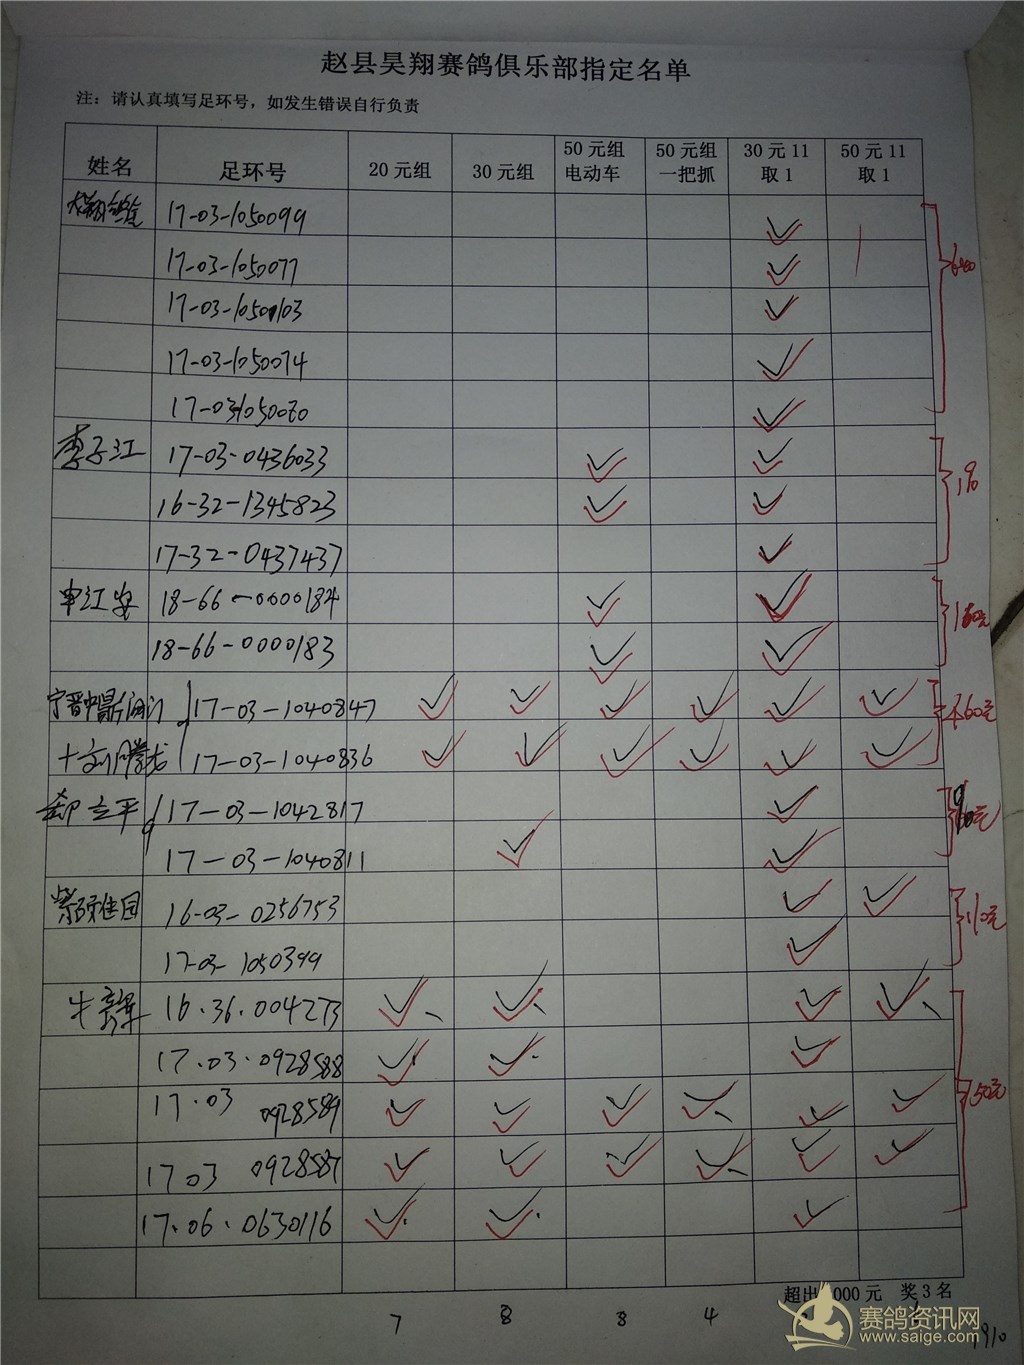 赵县昊翔赛鸽俱乐部指定名单
注：请认真填写足环号，如发生错误自行负责
姓名 足环号 20元组 30元组 50元组电动车 50元组一把抓 30元11取1 50元11取1
17-03-1050099
17-03-1050077
17-03-1050103
17-03-1050074
17-03-1050080
李子江 17-03-0436033
16-32-1345823
17-32-0437437
申江安 18-66-0000184
18-66-0000183
17-03-1040847
17-03-1040836
郄立平 17-03-1042817
17-03-1040811
16-03-0256753
17-03-1050399
16.36.004273
17.03.0928588
17.03 0928589
1703 0928587
17.06.0630116
超出 000元 奖3名
7 8 8 4
赛鸽资讯网
www.saige.com